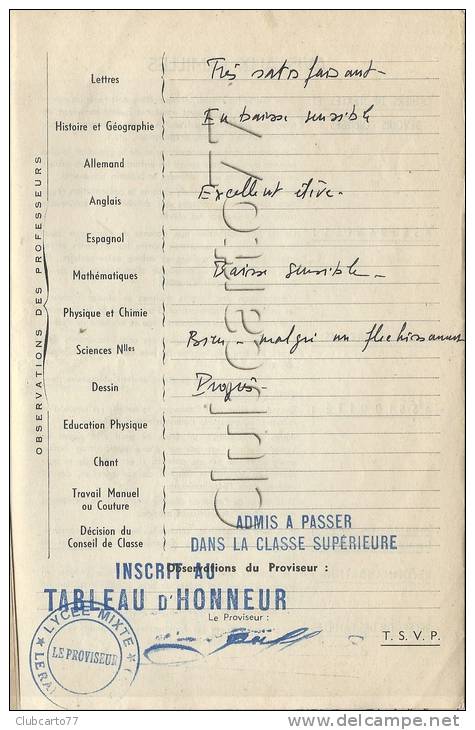 OBSERVATIONS DES PROFESSEURS
Lettres Très satisfaisant-
Histoire et Géographie En baisse sensible
Allemand
Anglais Excellent élève-
Espagnol
Mathématiques Baisse sensible-
Physique et Chimie
Sciences Nlles Bien- malgré un fléchissement
Dessin Progrès-
Education Physique
Chant
Travail Manuel
ou Couture
Décision du
Conseil de Classe
ADMIS A PASSER
DANS LA CLASSE SUPÉRIEURE
Observations du Proviseur :
INSCRIT AU
TABLEAU D'HONNEUR
Le Proviseur :
T. S. V. P.
LYCEE MIXTE
LE PROVISEUR
clubcarto77
Clubcarto77
www.delcampe.net